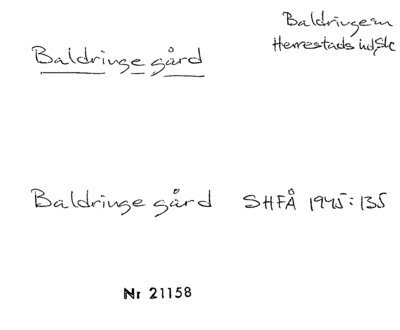 Baldringe sn
Herrestads hd, Sk
Baldringe gård
Baldringe gård SHFÅ 1945:135
Nr 21158